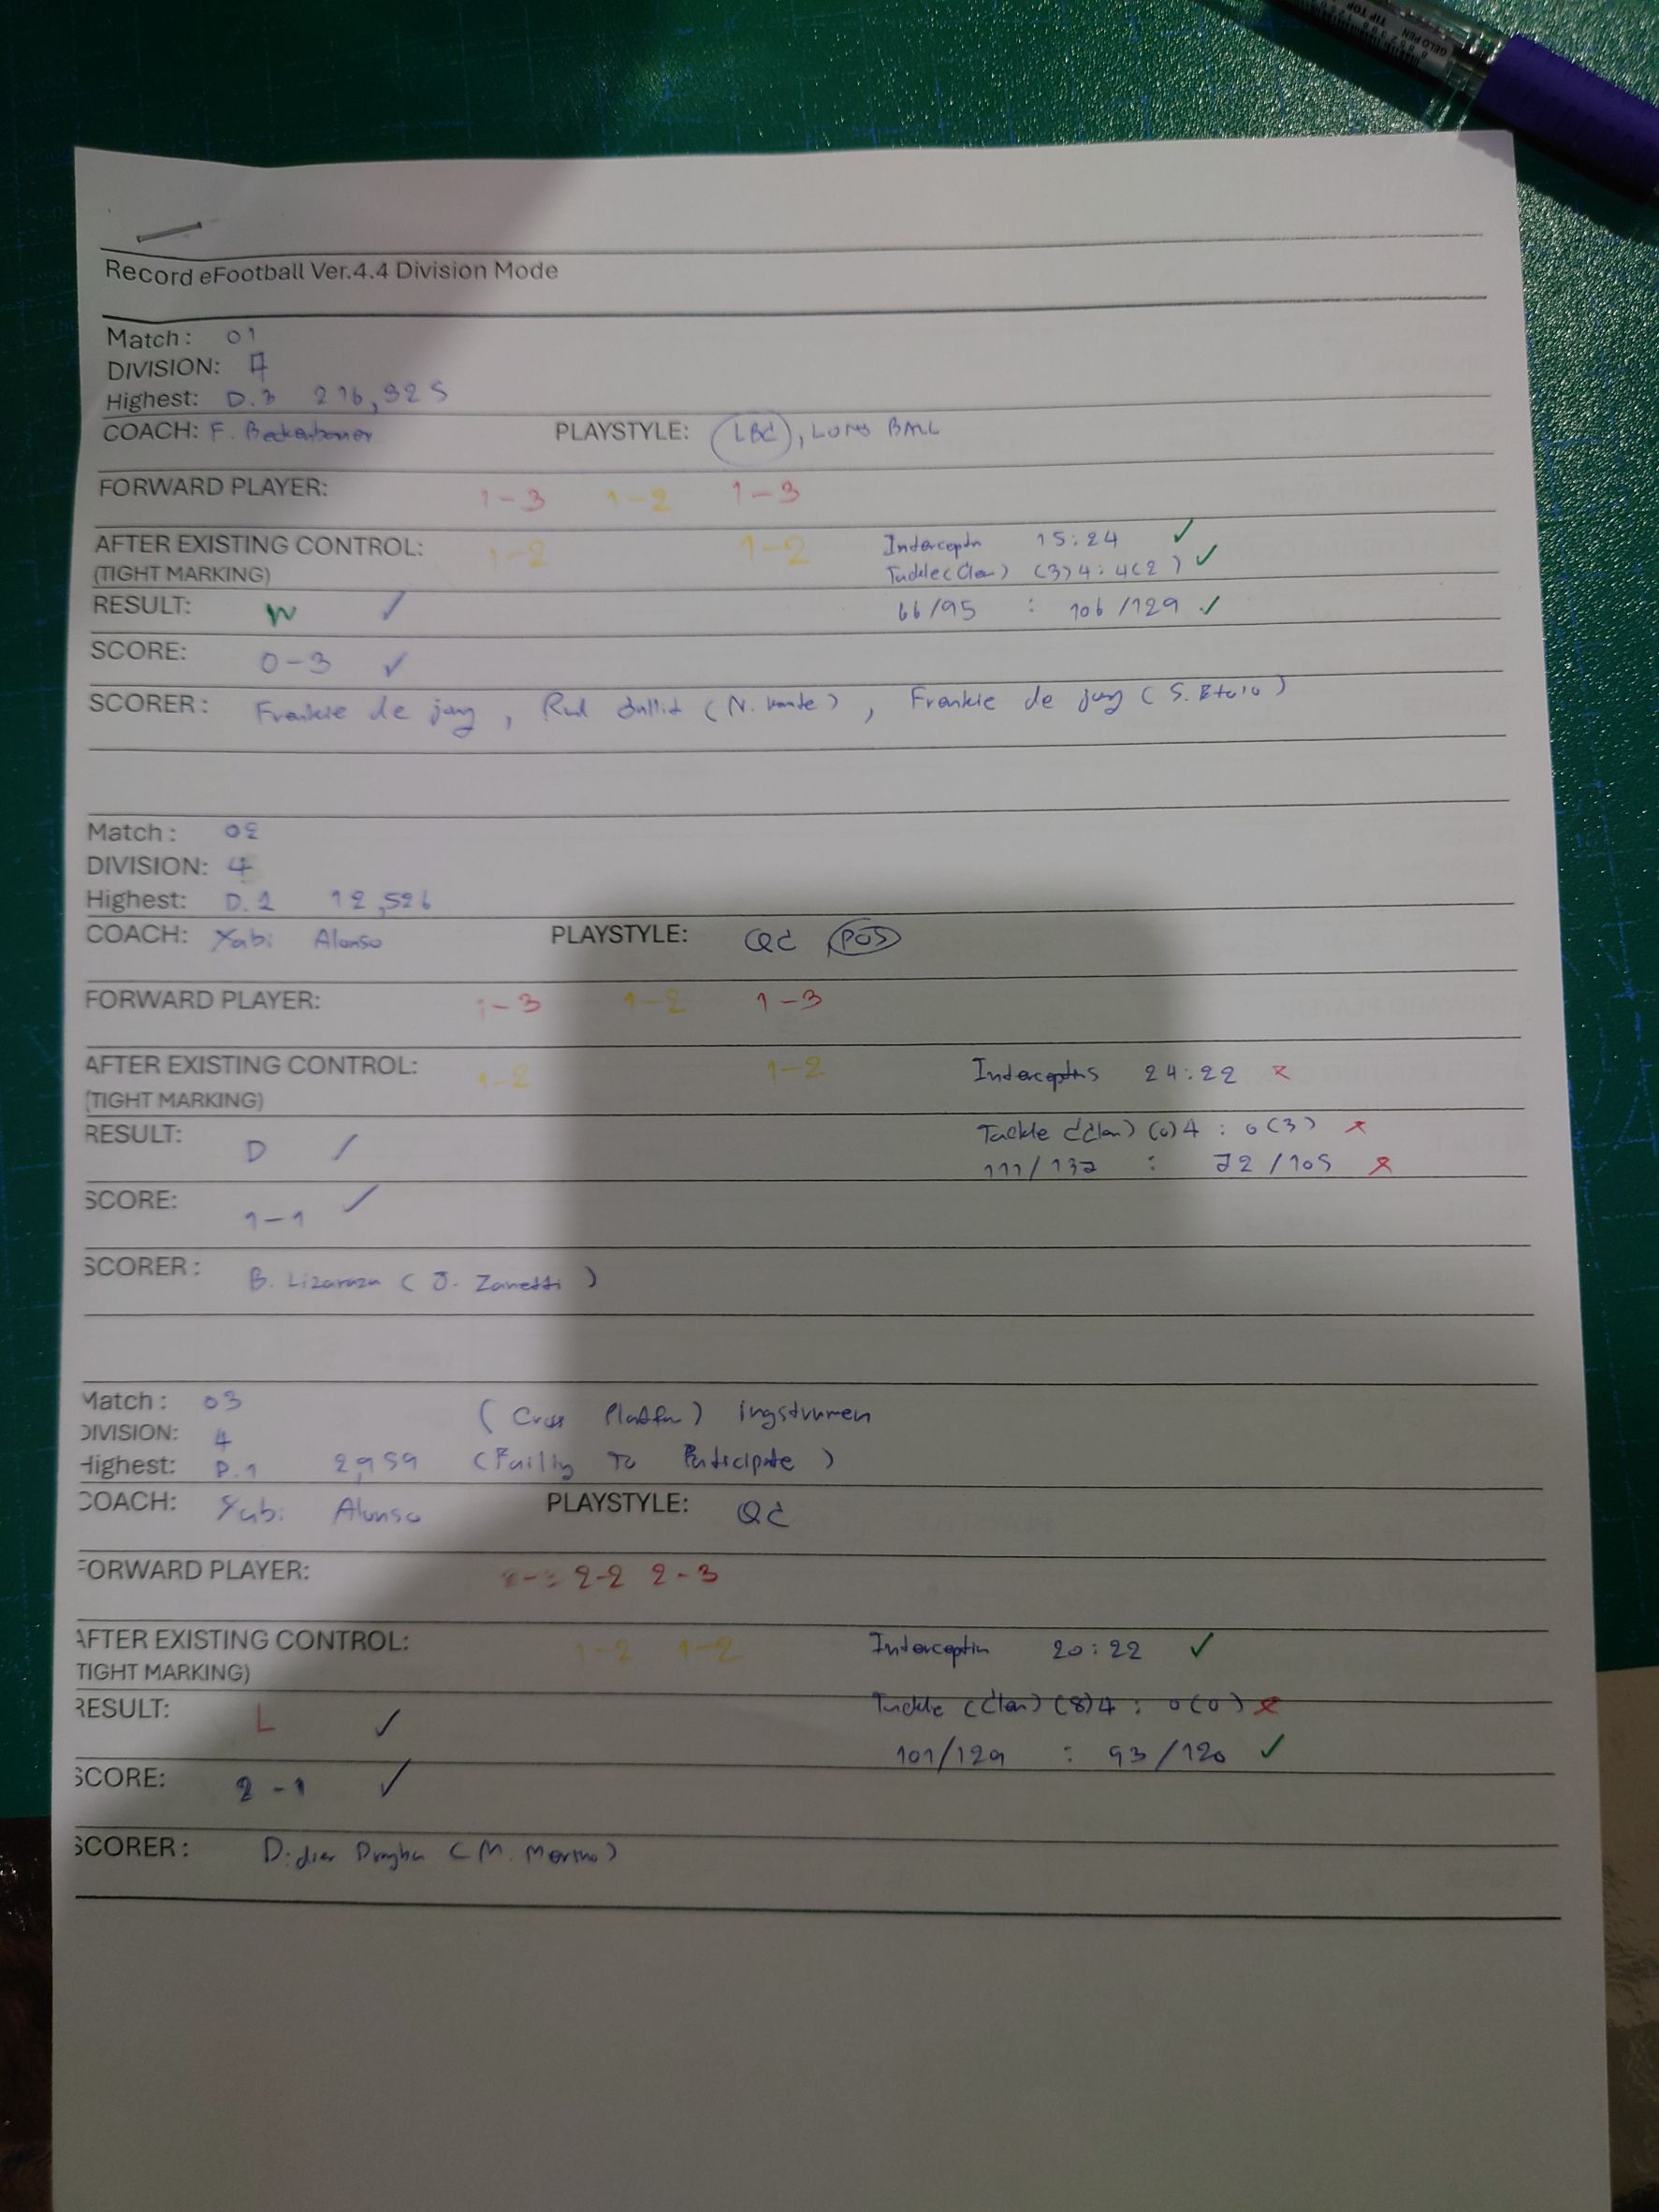 GELO PEN
TIP TOP
Record eFootball Ver.4.4 Division Mode
Match : 01
DIVISION: 4
Highest: D.3 216,925
COACH: F. Beckenbauer PLAYSTYLE: LBC, LONG BALL
FORWARD PLAYER: 1-3 1-2 1-3
AFTER EXISTING CONTROL: 1-2 1-2 Interceptn 15:24 ✓
(TIGHT MARKING) Tackle (Clen) (3)4:4(2) ✓
RESULT: W ✓ 66/95 : 106/129 ✓
SCORE: 0-3 ✓
SCORER : Frenkie de jong, Rud Gullit (N. Kante), Frenkie de jong (S. Eto'o)
Match : 02
DIVISION: 4
Highest: D.2 12,526
COACH: Xabi Alonso PLAYSTYLE: QC POS
FORWARD PLAYER: 1-3 1-2 1-3
AFTER EXISTING CONTROL: 1-2 1-2 Interceptns 24:22 x
(TIGHT MARKING)
RESULT: D ✓ Tackle (Clen) (0)4 : 0(3) x
111/137 : 72/105 x
SCORE: 1-1 ✓
SCORER : B. Lizarazu (J. Zanetti)
Match : 03 (Cross Platfm) ingstrumen
DIVISION: 4
Highest: D.1 2,959 (Failly To Participate)
COACH: Xabi Alonso PLAYSTYLE: QC
FORWARD PLAYER: 2-2 2-3
AFTER EXISTING CONTROL: 1-2 1-2 Interceptin 20:22 ✓
TIGHT MARKING)
RESULT: L ✓ Tackle (Clen) (8)4 : 0(0) x
101/129 : 93/120 ✓
SCORE: 2-1 ✓
SCORER : Didier Drogba (M. Merino)